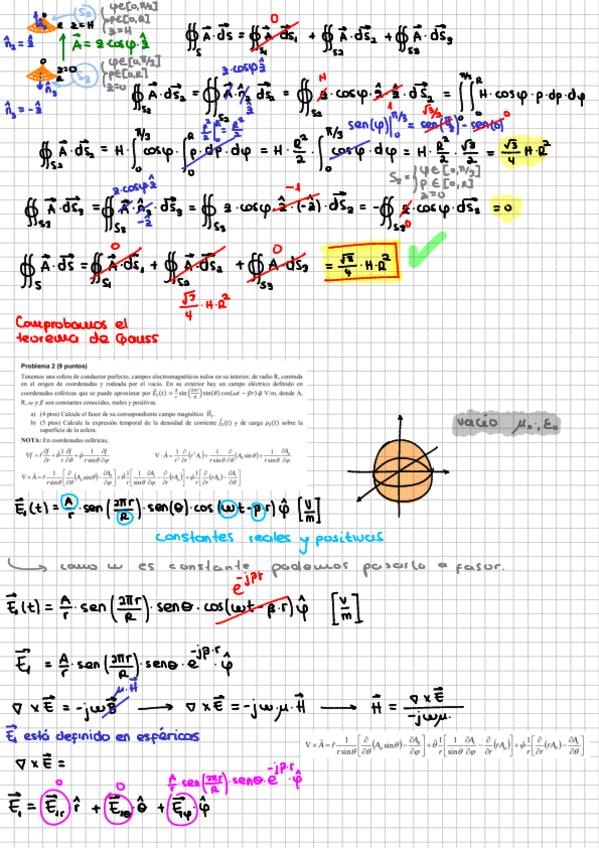 S₂ { φ∈[0,π/3] ρ∈[0,R] z=H
R z=H
n̂₂ = ẑ
A⃗ = z·cosφ·ẑ
∯_S A⃗·dS⃗ = ∯_S1 A⃗·dS⃗₁ + ∯_S2 A⃗·dS⃗₂ + ∯_S3 A⃗·dS⃗₃
0
z=0 S₃ { φ∈[0,π/3] ρ∈[0,R] z=0
n̂₃ = -ẑ
z·cosφ·ẑ
∯_S2 A⃗·dS⃗₂ = ∯_S2 A⃗·n̂₂·dS₂ = ∯_S2 z·cosφ·ẑ·ẑ·dS₂ = ∫₀^π/3 ∫₀^R H·cosφ·ρ·dρ·dφ
∯_S2 A⃗·dS⃗₂ = H·∫₀^π/3 cosφ·∫₀^R ρ·dρ·dφ = H·R²/2·∫₀^π/3 cosφ·dφ = H·R²/2·√3/2 = √3/4 H·R²
z·cosφ·ẑ
-1
S₃ = { φ∈[0,π/3] ρ∈[0,R] z=0
∯_S3 A⃗·dS⃗₃ = ∯_S3 A⃗·n̂₃·dS₃ = ∯_S3 z·cosφ·ẑ·(-ẑ)·dS₃ = -∯_S3 z·cosφ·dS₃ = 0
0 0
∯_S A⃗·dS⃗ = ∯_S1 A⃗·dS⃗₁ + ∯_S2 A⃗·dS⃗₂ + ∯_S3 A·dS⃗₃ = √3/4·H·R²
√3/4·H·R²
Comprobamos el
teorema de Gauss
Problema 2 (9 puntos)
Tenemos una esfera de conductor perfecto, campos electromagnéticos nulos en su interior, de radio R, centrada
en el origen de coordenadas y rodeada por el vacío. En su exterior hay un campo eléctrico definido en
coordenadas esféricas que se puede aproximar por E⃗₁(t) = A/r sin(2πr/R) sin(θ) cos(ωt − βr) φ̂ V/m, donde A,
R, ω y β son constantes conocidas, reales y positivas.
a) (4 ptos) Calcule el fasor de su correspondiente campo magnético H⃗₁.
b) (5 ptos) Calcule la expresión temporal de la densidad de corriente J⃗s(t) y de carga ρs(t) sobre la
superficie de la esfera.
NOTA: En coordenadas esféricas,
vacío μ₀, ε₀
E⃗₁(t) = A/r·sen(2πr/R)·sen(θ)·cos(ωt-βr) φ̂ [V/m]
constantes reales y positivas
como ω es constante podemos pasarlo a fasor.
e^-jβr
E⃗₁(t) = A/r·sen(2πr/R)·senθ·cos(ωt-β·r) φ̂ [V/m]
E⃗₁ = A/r·sen(2πr/R)·senθ·e^-jβ·r·φ̂
μ·H⃗
∇×E⃗ = -jωB⃗ → ∇×E⃗ = -jω·μ·H⃗ → H⃗ = ∇×E⃗/-jωμ.
E⃗₁ está definido en esféricas
∇×E⃗ =
A/r·sen(2πr/R)·senθ·e^-jβ·r·φ̂
0 0
E⃗₁ = E⃗₁r·r̂ + E⃗₁θ·θ̂ + E⃗₁φ·φ̂